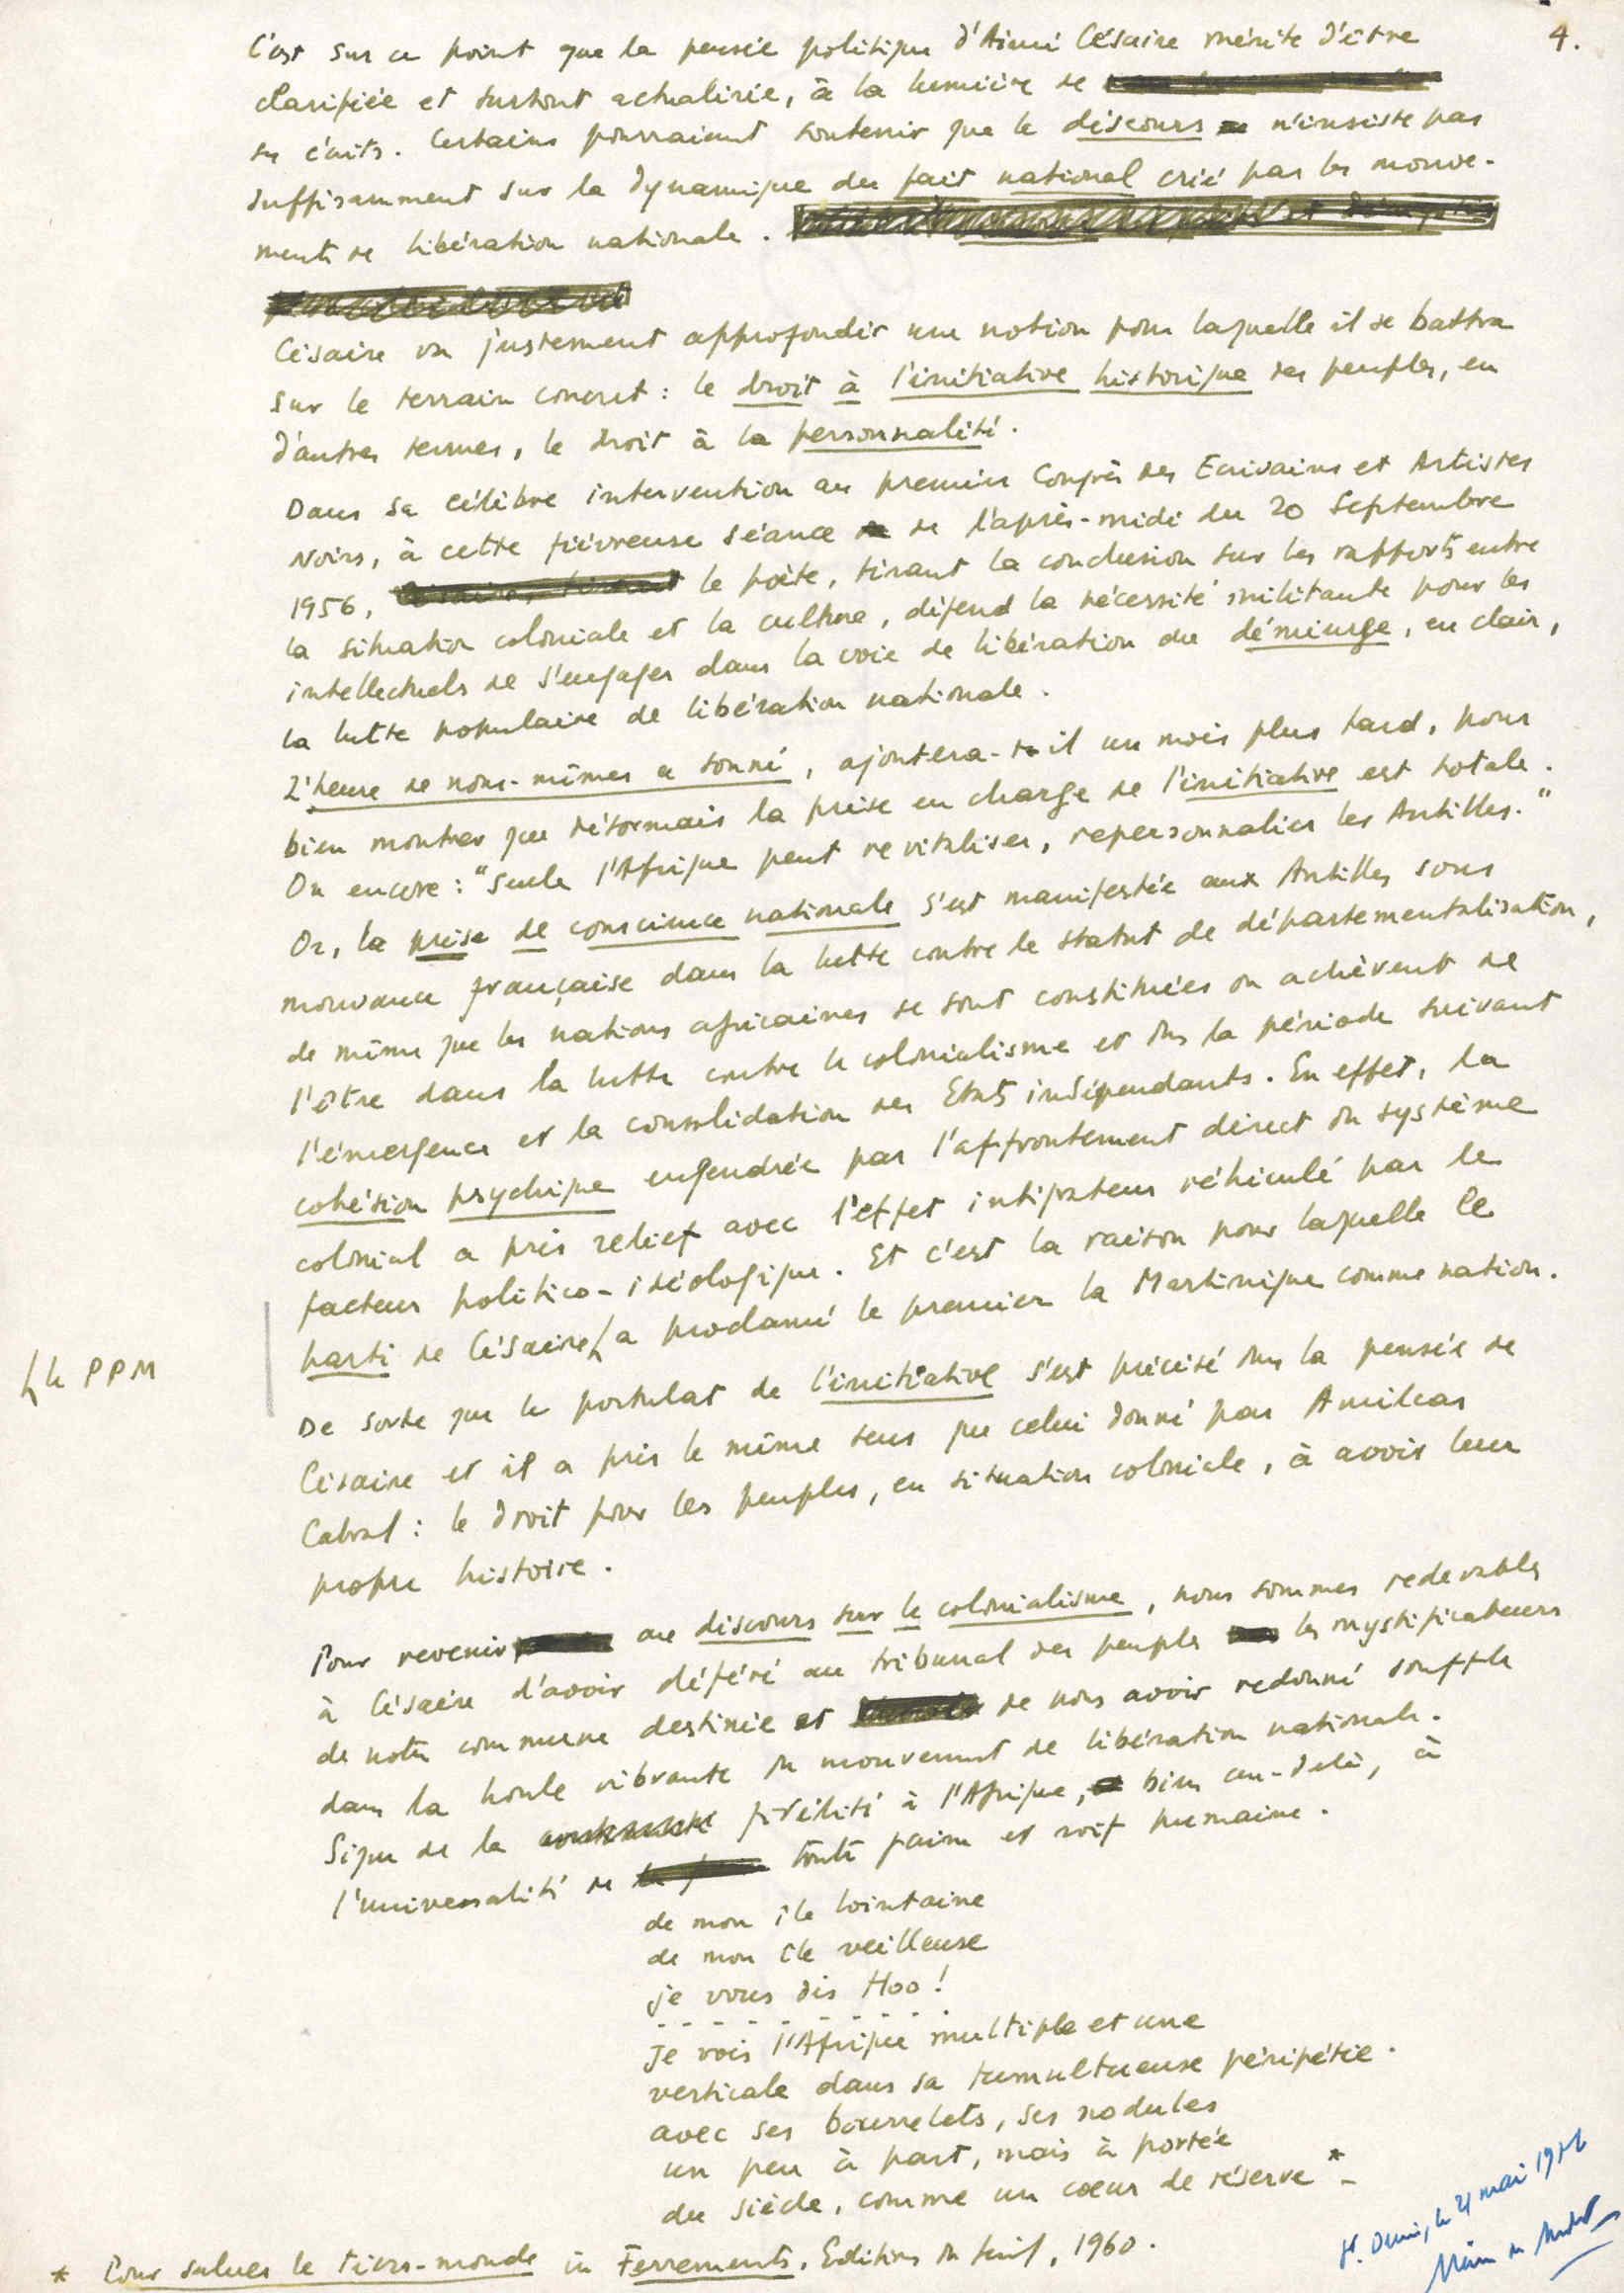 4.
C'est sur ce point que la pensée politique d'Aimé Césaire mérite d'être
clarifiée et surtout actualisée, à la lumière de
ses écrits. Certains pourraient soutenir que le discours n'insiste pas
suffisamment sur la dynamique du fait national créé par les mouve-
ments de libération nationale.
Césaire va justement approfondir une notion pour laquelle il se battra
sur le terrain concret : le droit à l'initiative historique des peuples, en
d'autres termes, le droit à la personnalité.
Dans sa célèbre intervention au premier Congrès des Ecrivains et Artistes
Noirs, à cette fiévreuse séance de l'après-midi du 20 Septembre
1956, le poète, tirant la conclusion sur les rapports entre
la situation coloniale et la culture, défend la nécessité militante pour les
intellectuels de s'engager dans la voie de libération du démiurge, en clair,
la lutte populaire de libération nationale.
L'heure de nous-mêmes a sonné, ajoutera-t-il un mois plus tard, pour
bien montrer que désormais la prise en charge de l'initiative est totale.
Ou encore : "Seule l'Afrique peut revitaliser, repersonnaliser les Antilles."
Or, la prise de conscience nationale s'est manifestée aux Antilles sous
mouvance française dans la lutte contre le statut de départementalisation,
de même que les nations africaines se sont constituées ou achèvent de
l'être dans la lutte contre le colonialisme et dans la période suivant
l'émergence et la consolidation des Etats indépendants. En effet, la
cohésion psychique engendrée par l'affrontement direct du système
colonial a pris relief avec l'effet intégrateur véhiculé par le
facteur politico-idéologique. Et c'est la raison pour laquelle le
parti de Césaire a proclamé le premier la Martinique comme nation.
le PPM
De sorte que le postulat de l'initiative s'est précisé dans la pensée de
Césaire et il a pris le même sens que celui donné par Amilcar
Cabral : le droit pour les peuples, en situation coloniale, à avoir leur
propre histoire.
Pour revenir au discours sur le colonialisme, nous sommes redevables
à Césaire d'avoir déféré au tribunal des peuples les mystificateurs
de notre commune destinée et de nous avoir redonné souffle
dans la houle vibrante du mouvement de libération nationale.
Signe de la fidélité à l'Afrique, bien au-delà, à
l'universalité de toute faim et soif humaine.
de mon île lointaine
de mon île veilleuse
je vous dis Hoo !
. . . . . . . . . .
Je vois l'Afrique multiple et une
verticale dans sa tumultueuse péripétie.
avec ses bourrelets, ses nodules,
un peu à part, mais à portée
du siècle, comme un coeur de réserve *-
St. Denis, le 21 mai
* Pour saluer le tiers-monde in Ferrements, Editions du Seuil, 1960.